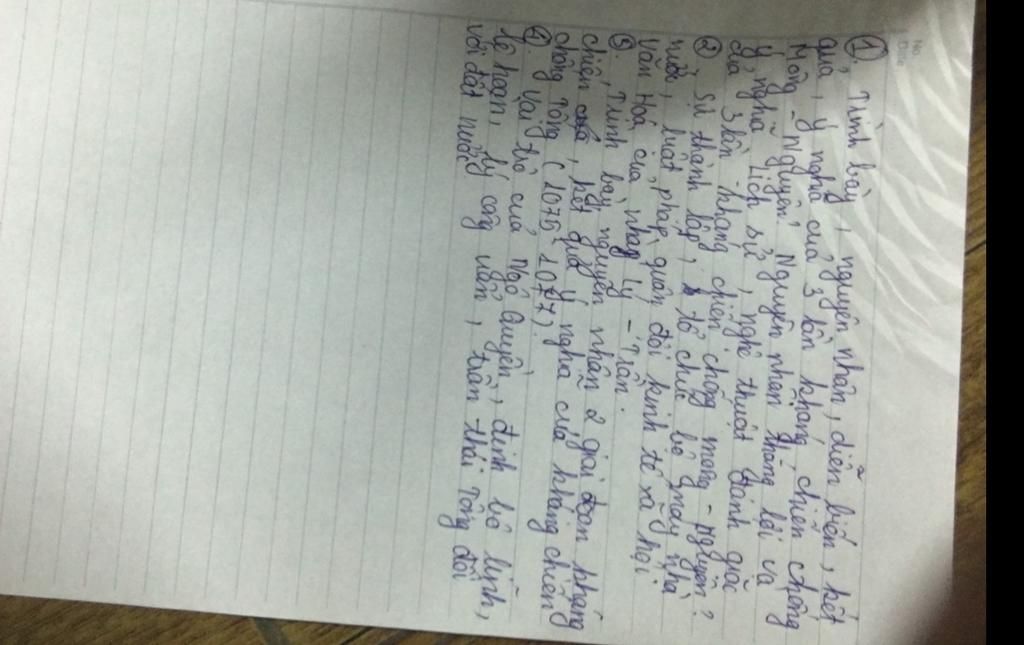 No.
Date
①. Trình bày, nguyên nhân, diễn biến, kết
quả, ý nghĩa của 3 lần kháng chiến chống
Mông - Nguyên. Nguyên nhân thắng lợi và
ý nghĩa lịch sử, nghệ thuật đánh giặc
của 3 lần kháng chiến chống mông - nguyên?
② Sự thành lập, tổ chức bộ máy nhà
nước, luật pháp, quân đội kinh tế xã hội
văn Hoá của nhà lý - Trần.
③. Trình bày nguyên nhân 2 giai đoạn kháng
chiến, kết quả ý nghĩa của kháng chiến
chống Tống (1075 - 1077);
④. Vai trò của Ngô Quyền, đinh bộ lĩnh,
lê hoàn, lý công uẩn, trần thái Tông đối
với đất nước